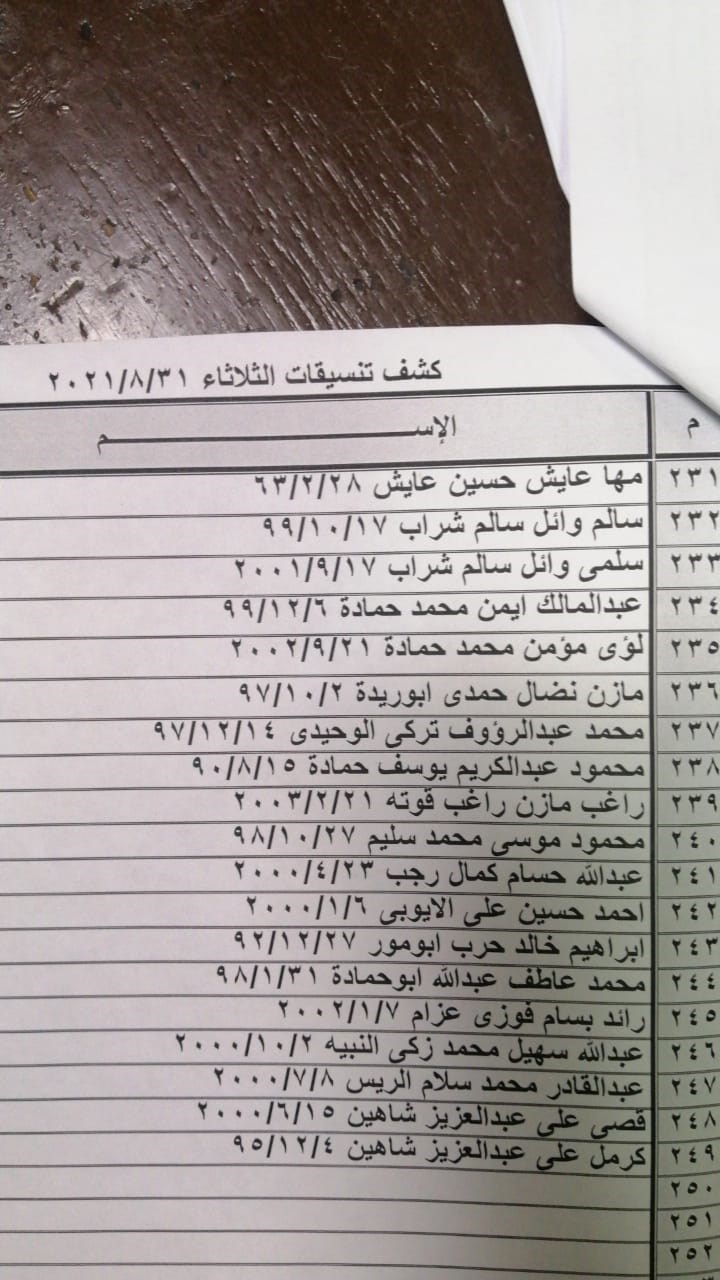 كشف تنسيقات الثلاثاء ٢٠٢١/٨/٣١
م الإســـــــــم
٢٣١ مها عايش حسين عايش ٦٣/٢/٢٨
٢٣٢ سالم وائل سالم شراب ٩٩/١٠/١٧
٢٣٣ سلمى وائل سالم شراب ٢٠٠١/٩/١٧
٢٣٤ عبدالمالك ايمن محمد حمادة ٩٩/١٢/٦
٢٣٥ لؤى مؤمن محمد حمادة ٢٠٠٢/٩/٢١
٢٣٦ مازن نضال حمدى ابوريدة ٩٧/١٠/٢
٢٣٧ محمد عبدالرؤوف تركى الوحيدى ٩٧/١٢/١٤
٢٣٨ محمود عبدالكريم يوسف حمادة ٩٠/٨/١٥
٢٣٩ راغب مازن راغب قوته ٢٠٠٣/٢/٢١
٢٤٠ محمود موسى محمد سليم ٩٨/١٠/٢٧
٢٤١ عبدالله حسام كمال رجب ٢٠٠٠/٤/٢٣
٢٤٢ احمد حسين على الايوبى ٢٠٠٠/١/٦
٢٤٣ ابراهيم خالد حرب ابومور ٩٢/١٢/٢٧
٢٤٤ محمد عاطف عبدالله ابوحمادة ٩٨/١/٣١
٢٤٥ رائد بسام فوزى عزام ٢٠٠٢/١/٧
٢٤٦ عبدالله سهيل محمد زكى النبيه ٢٠٠٠/١٠/٢
٢٤٧ عبدالقادر محمد سلام الريس ٢٠٠٠/٧/٨
٢٤٨ قصى على عبدالعزيز شاهين ٢٠٠٠/٦/١٥
٢٤٩ كرمل على عبدالعزيز شاهين ٩٥/١٢/٤
٢٥٠
٢٥١
٢٥٢